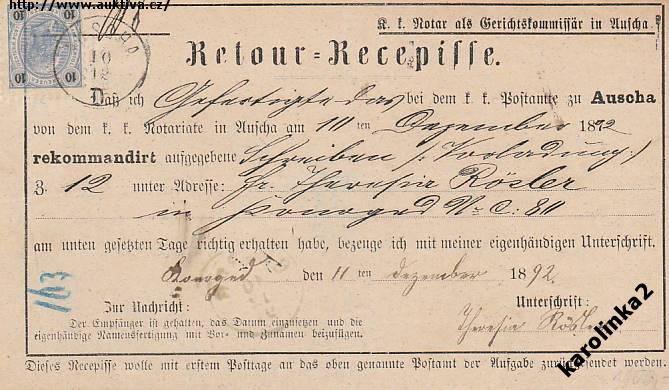 http://www.auktiva.cz/
K. k. Notar als Gerichtskommissär in Auscha.
10 10
Retour=Recepisse.
Daß ich Gefertigte das bei dem k. k. Postamte zu Auscha
von dem k. k. Notariate in Auscha am 10 ten Dezember 1892
rekommandirt aufgegebene Schreiben /: Vorladung :/
Z. 12 unter Adresse: Fr. Theresia Rösler
in Konoged N. C. 80
am unten gesetzten Tage richtig erhalten habe, bezeuge ich mit meiner eigenhändigen Unterschrift.
Konoged den 11 ten Dezember 1892.
163
Zur Nachricht:
Unterschrift:
Der Empfänger ist gehalten, das Datum einzusetzen und die
eigenhändige Namensfertigung mit Vor- und Zunamen beizufügen.
Theresia Rösler
Dieses Recepisse wolle mit erstem Posttage an das oben genannte Postamt der Aufgabe zurückgesendet werden.
karolinka2